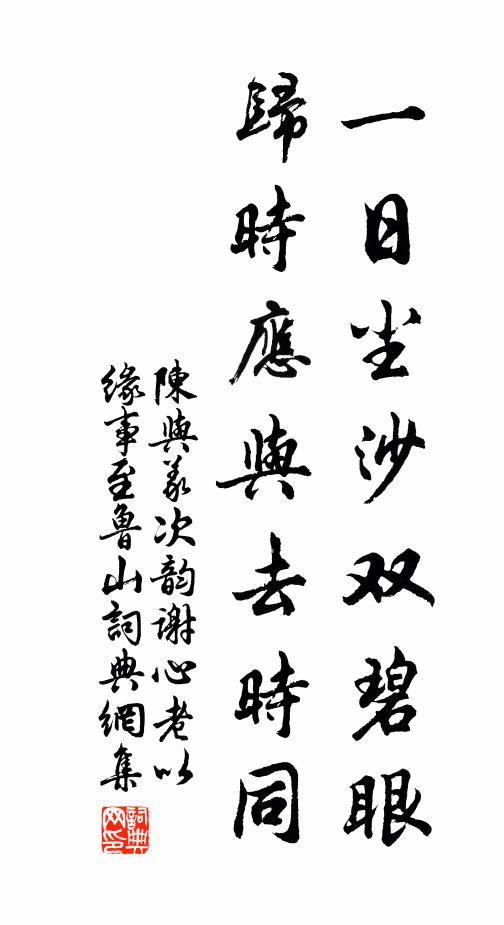 一日尘沙双碧眼
歸時應與去時同
陳與義次韵谢心老以
缘事至魯山詞典網集
詞典
网印